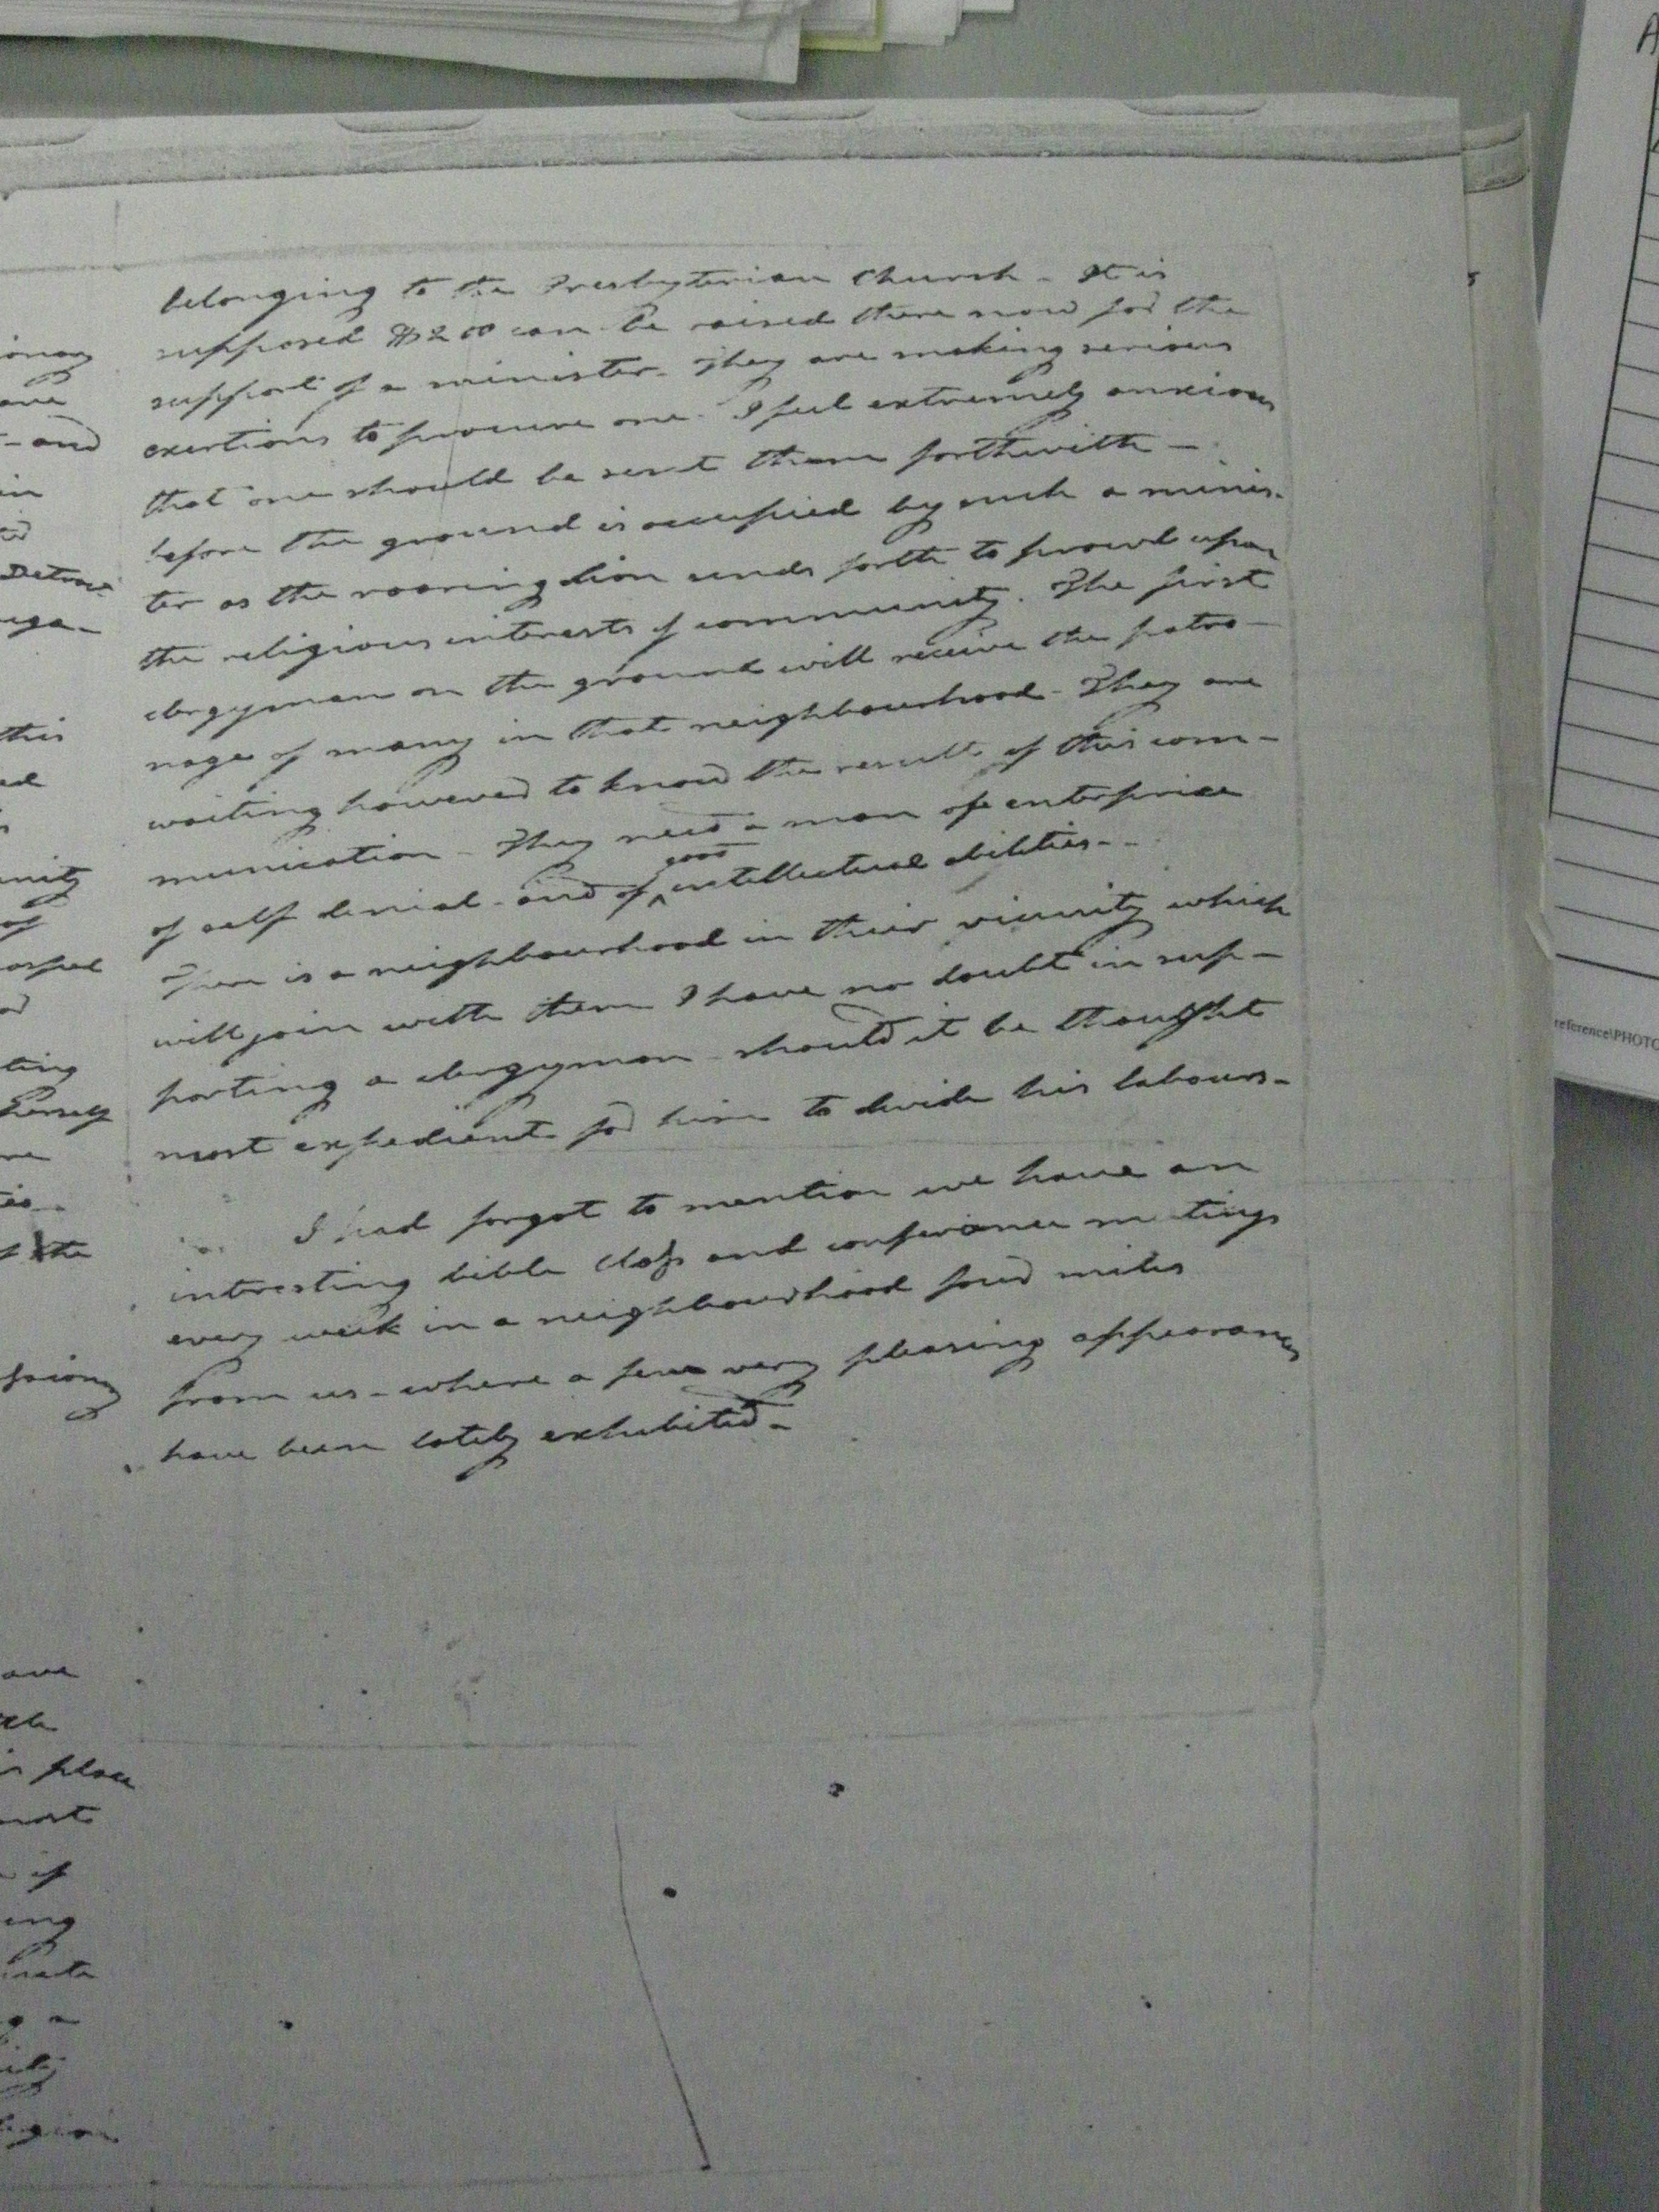 belonging to the Presbyterian Church - It is
supposed $200 can be raised there now for the
support of a minister - They are making serious
exertions to procure one - I feel extremely anxious
that one should be sent them forthwith -
before the ground is occupied by such a minis-
ter as the roaring lion sends forth to prowl upon
the religious interests of community. The first
clergyman on the ground will receive the patro-
nage of many in that neighbourhood - They are
waiting however to know the result of this com-
munication - They need a man of enterprise
of self denial - and of ^ good intellectual abilities - -
There is a neighbourhood in their vicinity which
will join with them I have no doubt in sup-
porting a clergyman - should it be thought
most expedient for him to divide his labours -
I had forgot to mention we have an
interesting bible class and conference meetings
every week in a neighbourhood four miles
from us - where a few very pleasing appearances
have been lately exhibited -
- and
Detroit
this
of
the
place
most
if
ing
a
reference\PHOTO